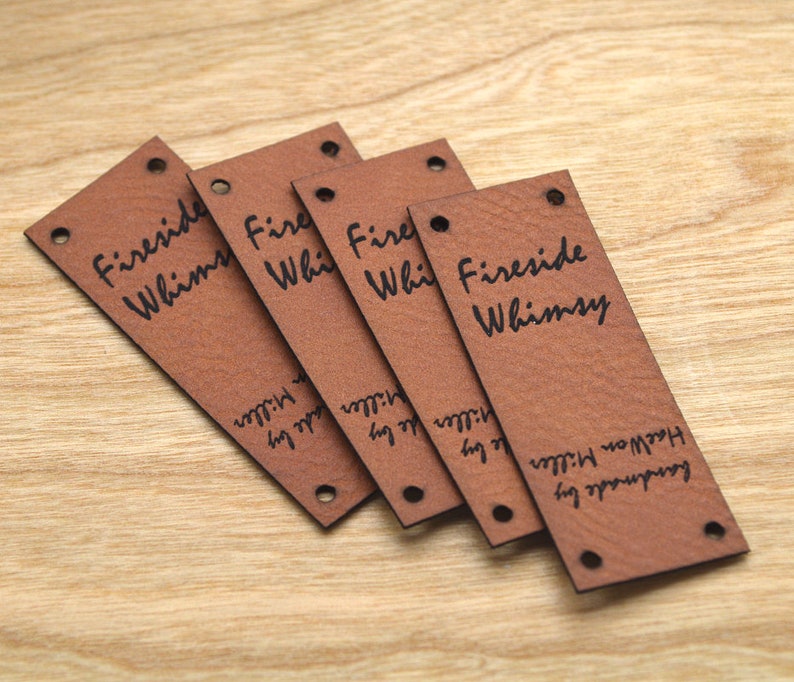 Fireside
Whimsy
handmade by
HaeWon Miller
Fireside
Whimsy
made by
n Miller
Fireside
Whimsy
made by
Miller
Fireside
Whimsy
handmade by
HaeWon Miller